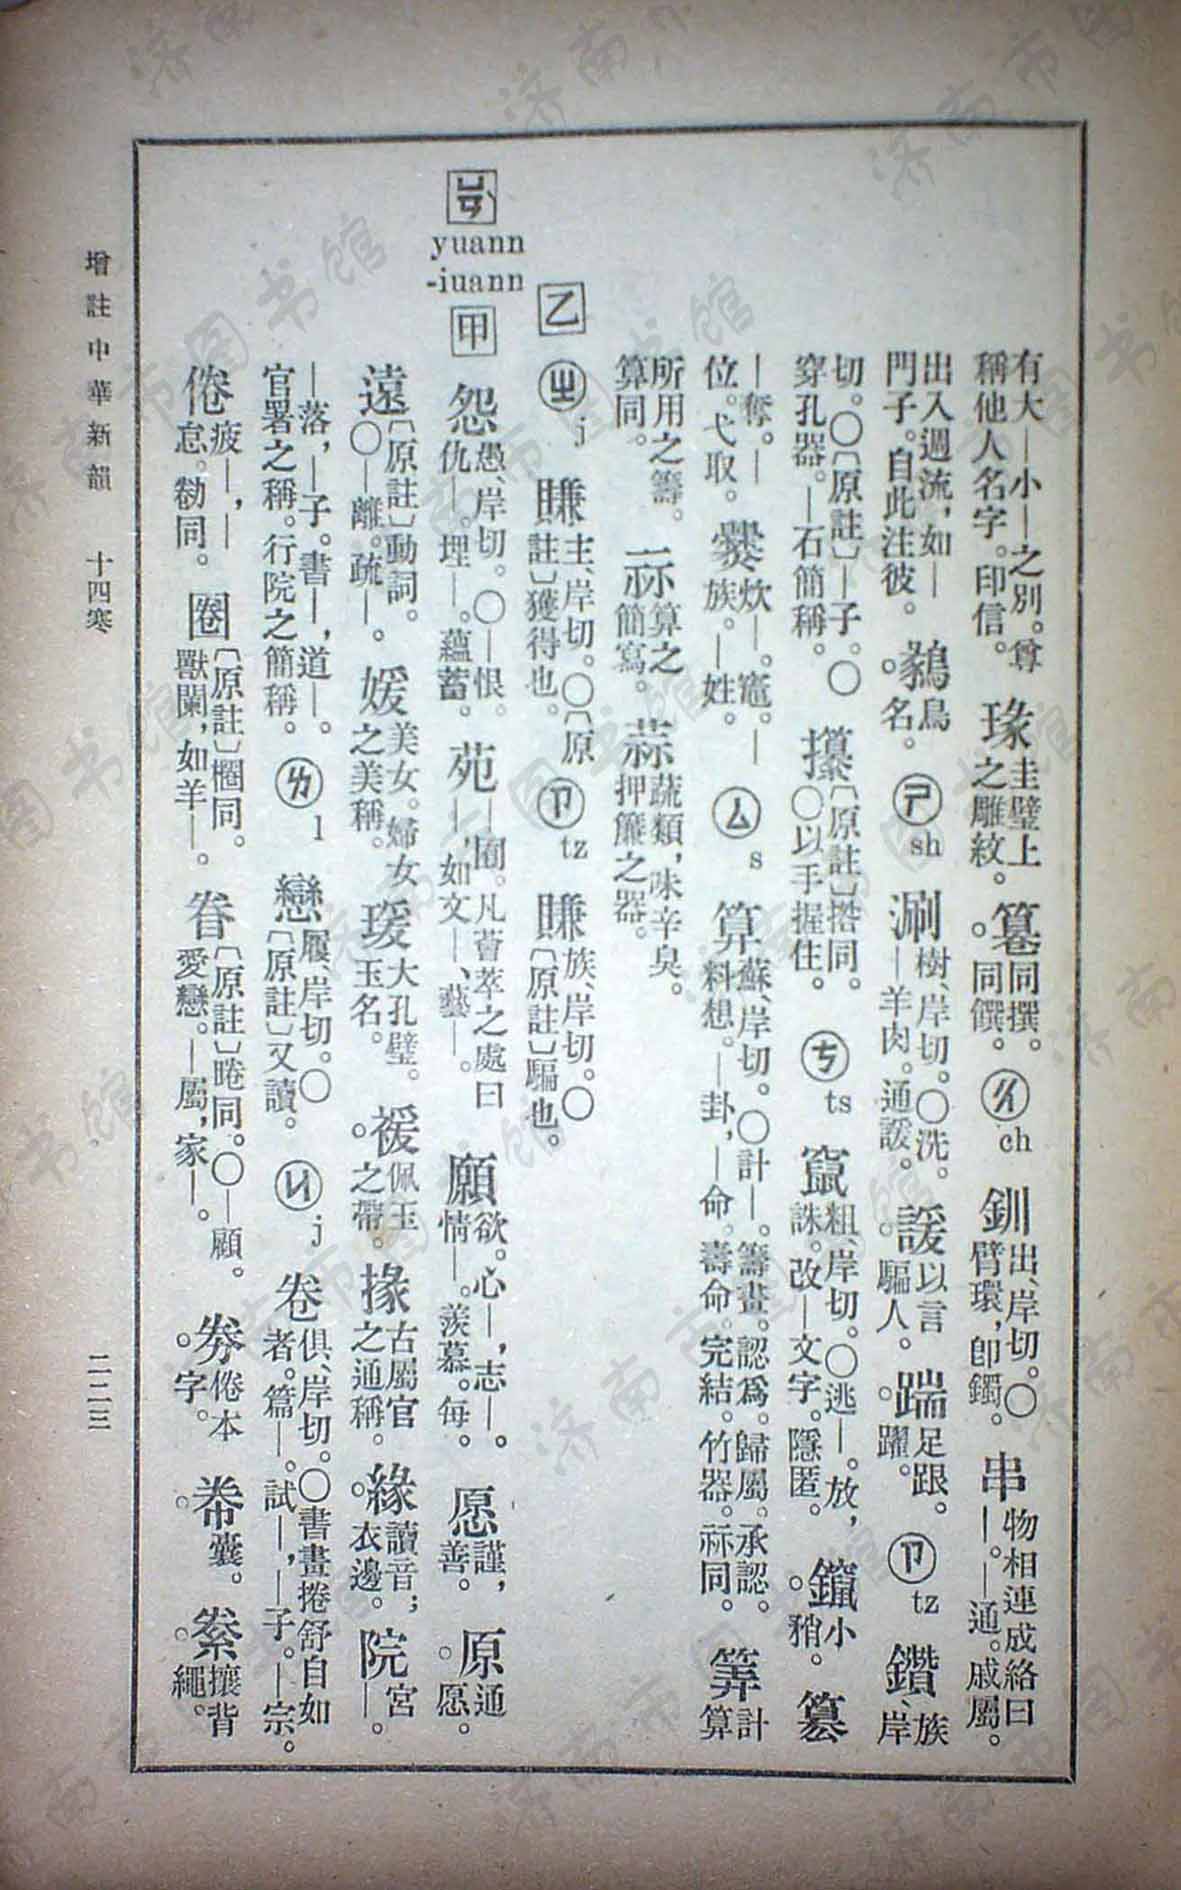 有大—小—之別。尊
稱他人名字。印信。
瑑圭璧上
之雕紋。
篹同撰。
同饌。
ㄔ ch
釧出、岸切。〇
臂環，卽鐲。
串物相連成絡曰
—。—通。戚屬。
出入週流，如—
門子。自此注彼。
鶨鳥
名。
ㄕ sh
涮樹、岸切。〇洗。
—羊肉。通䛔。
諼以言
騙人。
踹足跟。
躍。
ㄗ tz
鑽族、岸
切。〇〔原註〕—子。〇
穿孔器。—石簡稱。
攥〔原註〕揝同。
〇以手握住。
ㄘ ts
竄粗、岸切。〇逃—。放，
誅。改—文字。隱匿。
鑹小
矟。
篡
—奪。—
位。弋取。
爨炊—。竈。—
族。—姓。
ㄙ s
算蘇、岸切。〇計—。籌畫。認爲。歸屬。承認。
料想。—卦，—命。壽命。完結。竹器。祘同。
筭計
算
所用之籌。
算同。
祘算之
簡寫。
蒜蔬類，味辛臭。
押簾之器。
乙
ㄓ j
賺主、岸切。〇〔原
註〕獲得也。
ㄗ tz
賺族、岸切。〇
〔原註〕騙也。
ㄩㄢˋ
yuann
-iuann
甲
怨愚、岸切。〇—恨。
仇—。埋—。蘊蓄。
苑—囿。凡薈萃之處曰
—，如文—、藝—。
願欲。心—，志—。
情—。羨慕。每。
愿謹，
善。
原通
愿。
遠〔原註〕動詞。
〇—離。疏—。
媛美女。婦女
之美稱。
瑗大孔璧。
玉名。
褑佩玉
之帶。
掾古屬官
之通稱。
緣讀音；
衣邊。
院宮
—。
—落，—子。書—，道—。
官署之稱。行院之簡稱。
ㄌ l
戀履、岸切。〇
〔原註〕又讀。
ㄐ j
卷俱、岸切。〇書畫捲舒自如
者。篇—。試—，—子。—宗。
倦疲—，—
怠。勌同。
圈〔原註〕棬同。
獸闌，如羊—。
眷〔原註〕睠同。〇—顧。
愛戀。—屬，家—。
劵倦本
字。
帣囊。
絭攘背
繩。
增註中華新韻　十四寒　二二三